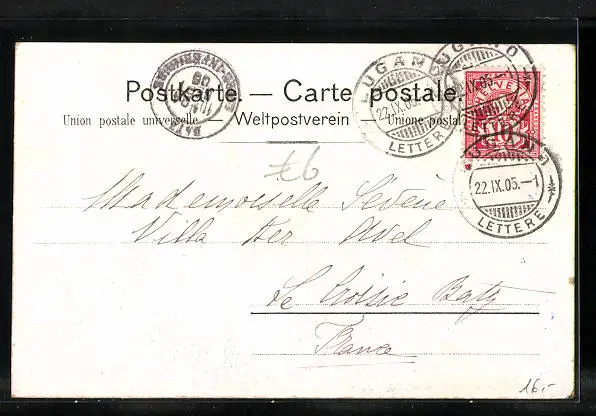 Postkarte. — Carte postale.
Union postale universelle. — Weltpostverein — Unione postale
LUGANO
22.IX.05.
LETTERE
LUGANO
.IX.05.
HELVETIA
10
22.IX.05.—1
LETTERE
£6
Mademoiselle
Villa Ker Avel
Le Croisic Batz
France
16.-